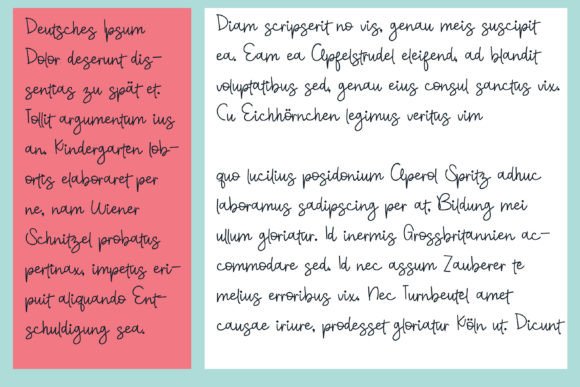 Deutsches Ipsum
Dolor deserunt dis-
sentias zu spät et.
Tollit argumentum ius
an. Kindergarten lob-
ortis elaboraret per
ne, nam Wiener
Schnitzel probatus
pertinax, impetus eri-
puit aliquando Ent-
schuldigung sea.
Diam scripserit no vis, genau meis suscipit
ea. Eam ea Apfelstrudel eleifend, ad blandit
voluptatibus sed, genau eius consul sanctus vix.
Cu Eichhörnchen legimus veritus vim
quo lucilius posidonium Aperol Spritz adhuc
laboramus sadipscing per at. Bildung mei
ullum gloriatur. Id inermis Grossbritannien ac-
commodare sed. Id nec assum Zauberer te
melius erroribus vix. Nec Turnbeutel amet
causae iriure, prodesset gloriatur Köln ut. Dicunt